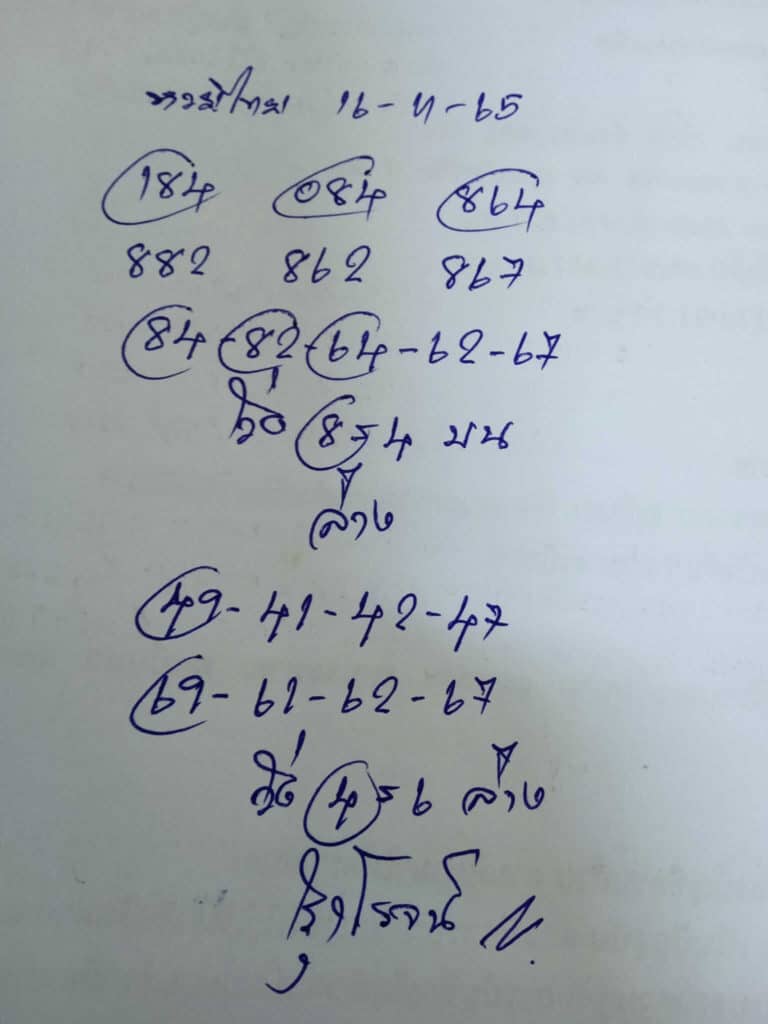 16-4-65
184 084 864
882 862 867
84-82-64-62-67
วิ่ง 8=4 บน
ล่าง
49-41-42-47
69-61-62-67
วิ่ง 4=6 ล่าง
N.